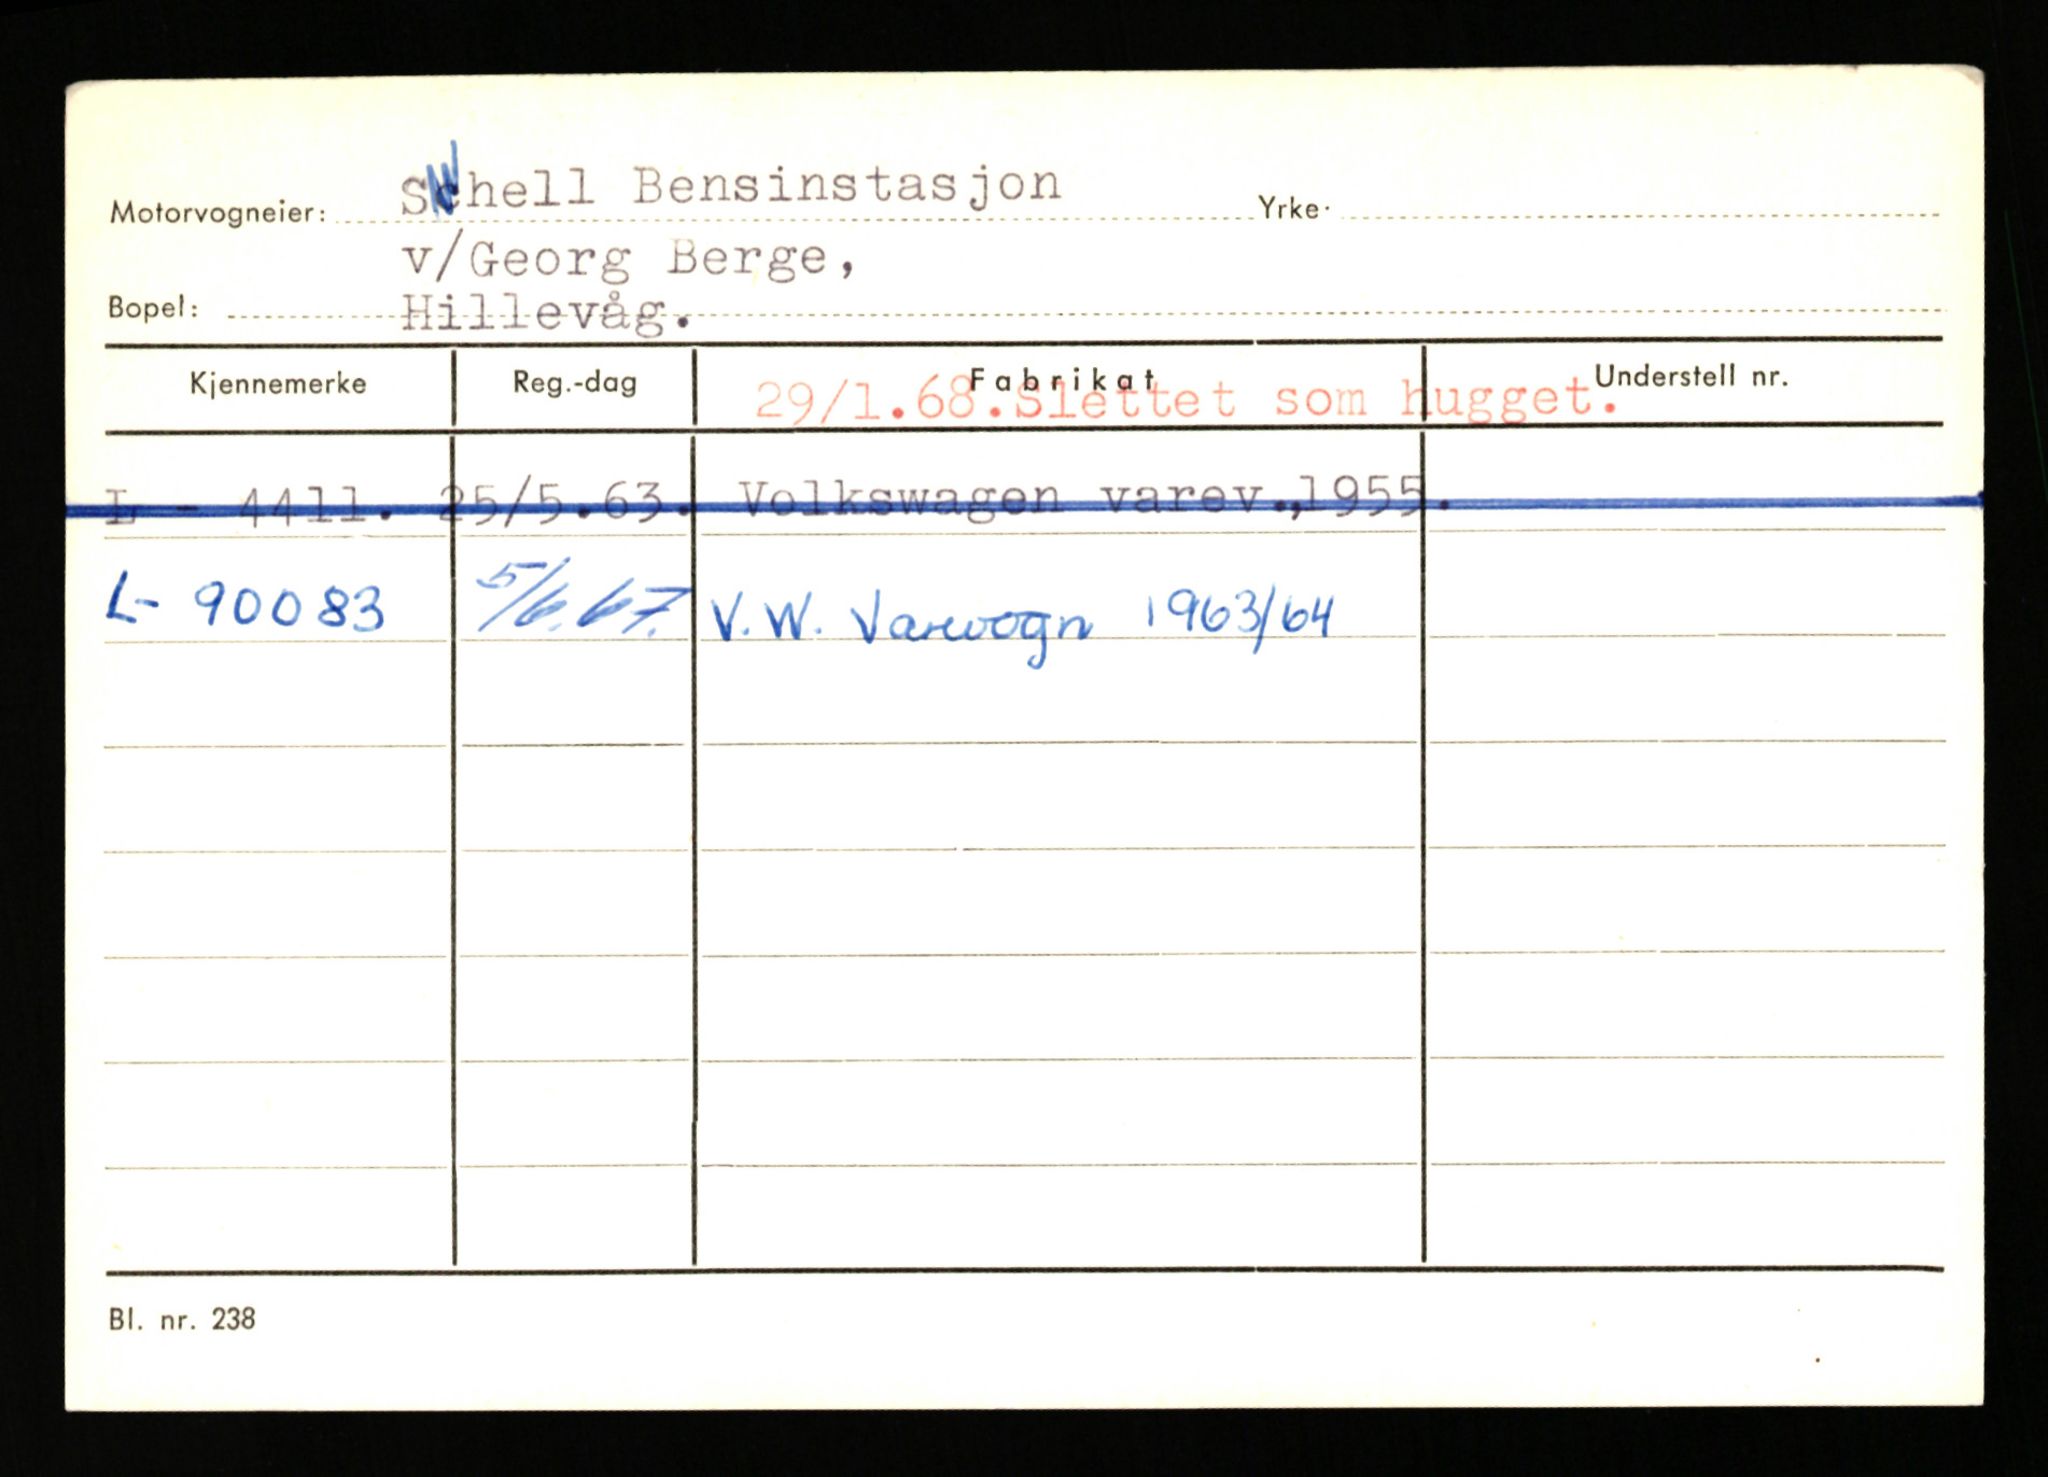 Motorvogneier: Schell Bensinstasjon Yrke.
v/Georg Berge,
Bopel: Hillevåg.
Kjennemerke Reg.-dag Fabrikat Understell nr.
29/1.68.Slettet som hugget.
L - 4411. 25/5.63. Volkswagen varev.,1955.
L- 90083 5/6.67. V.W. Varevogn 1963/64
Bl. nr. 238